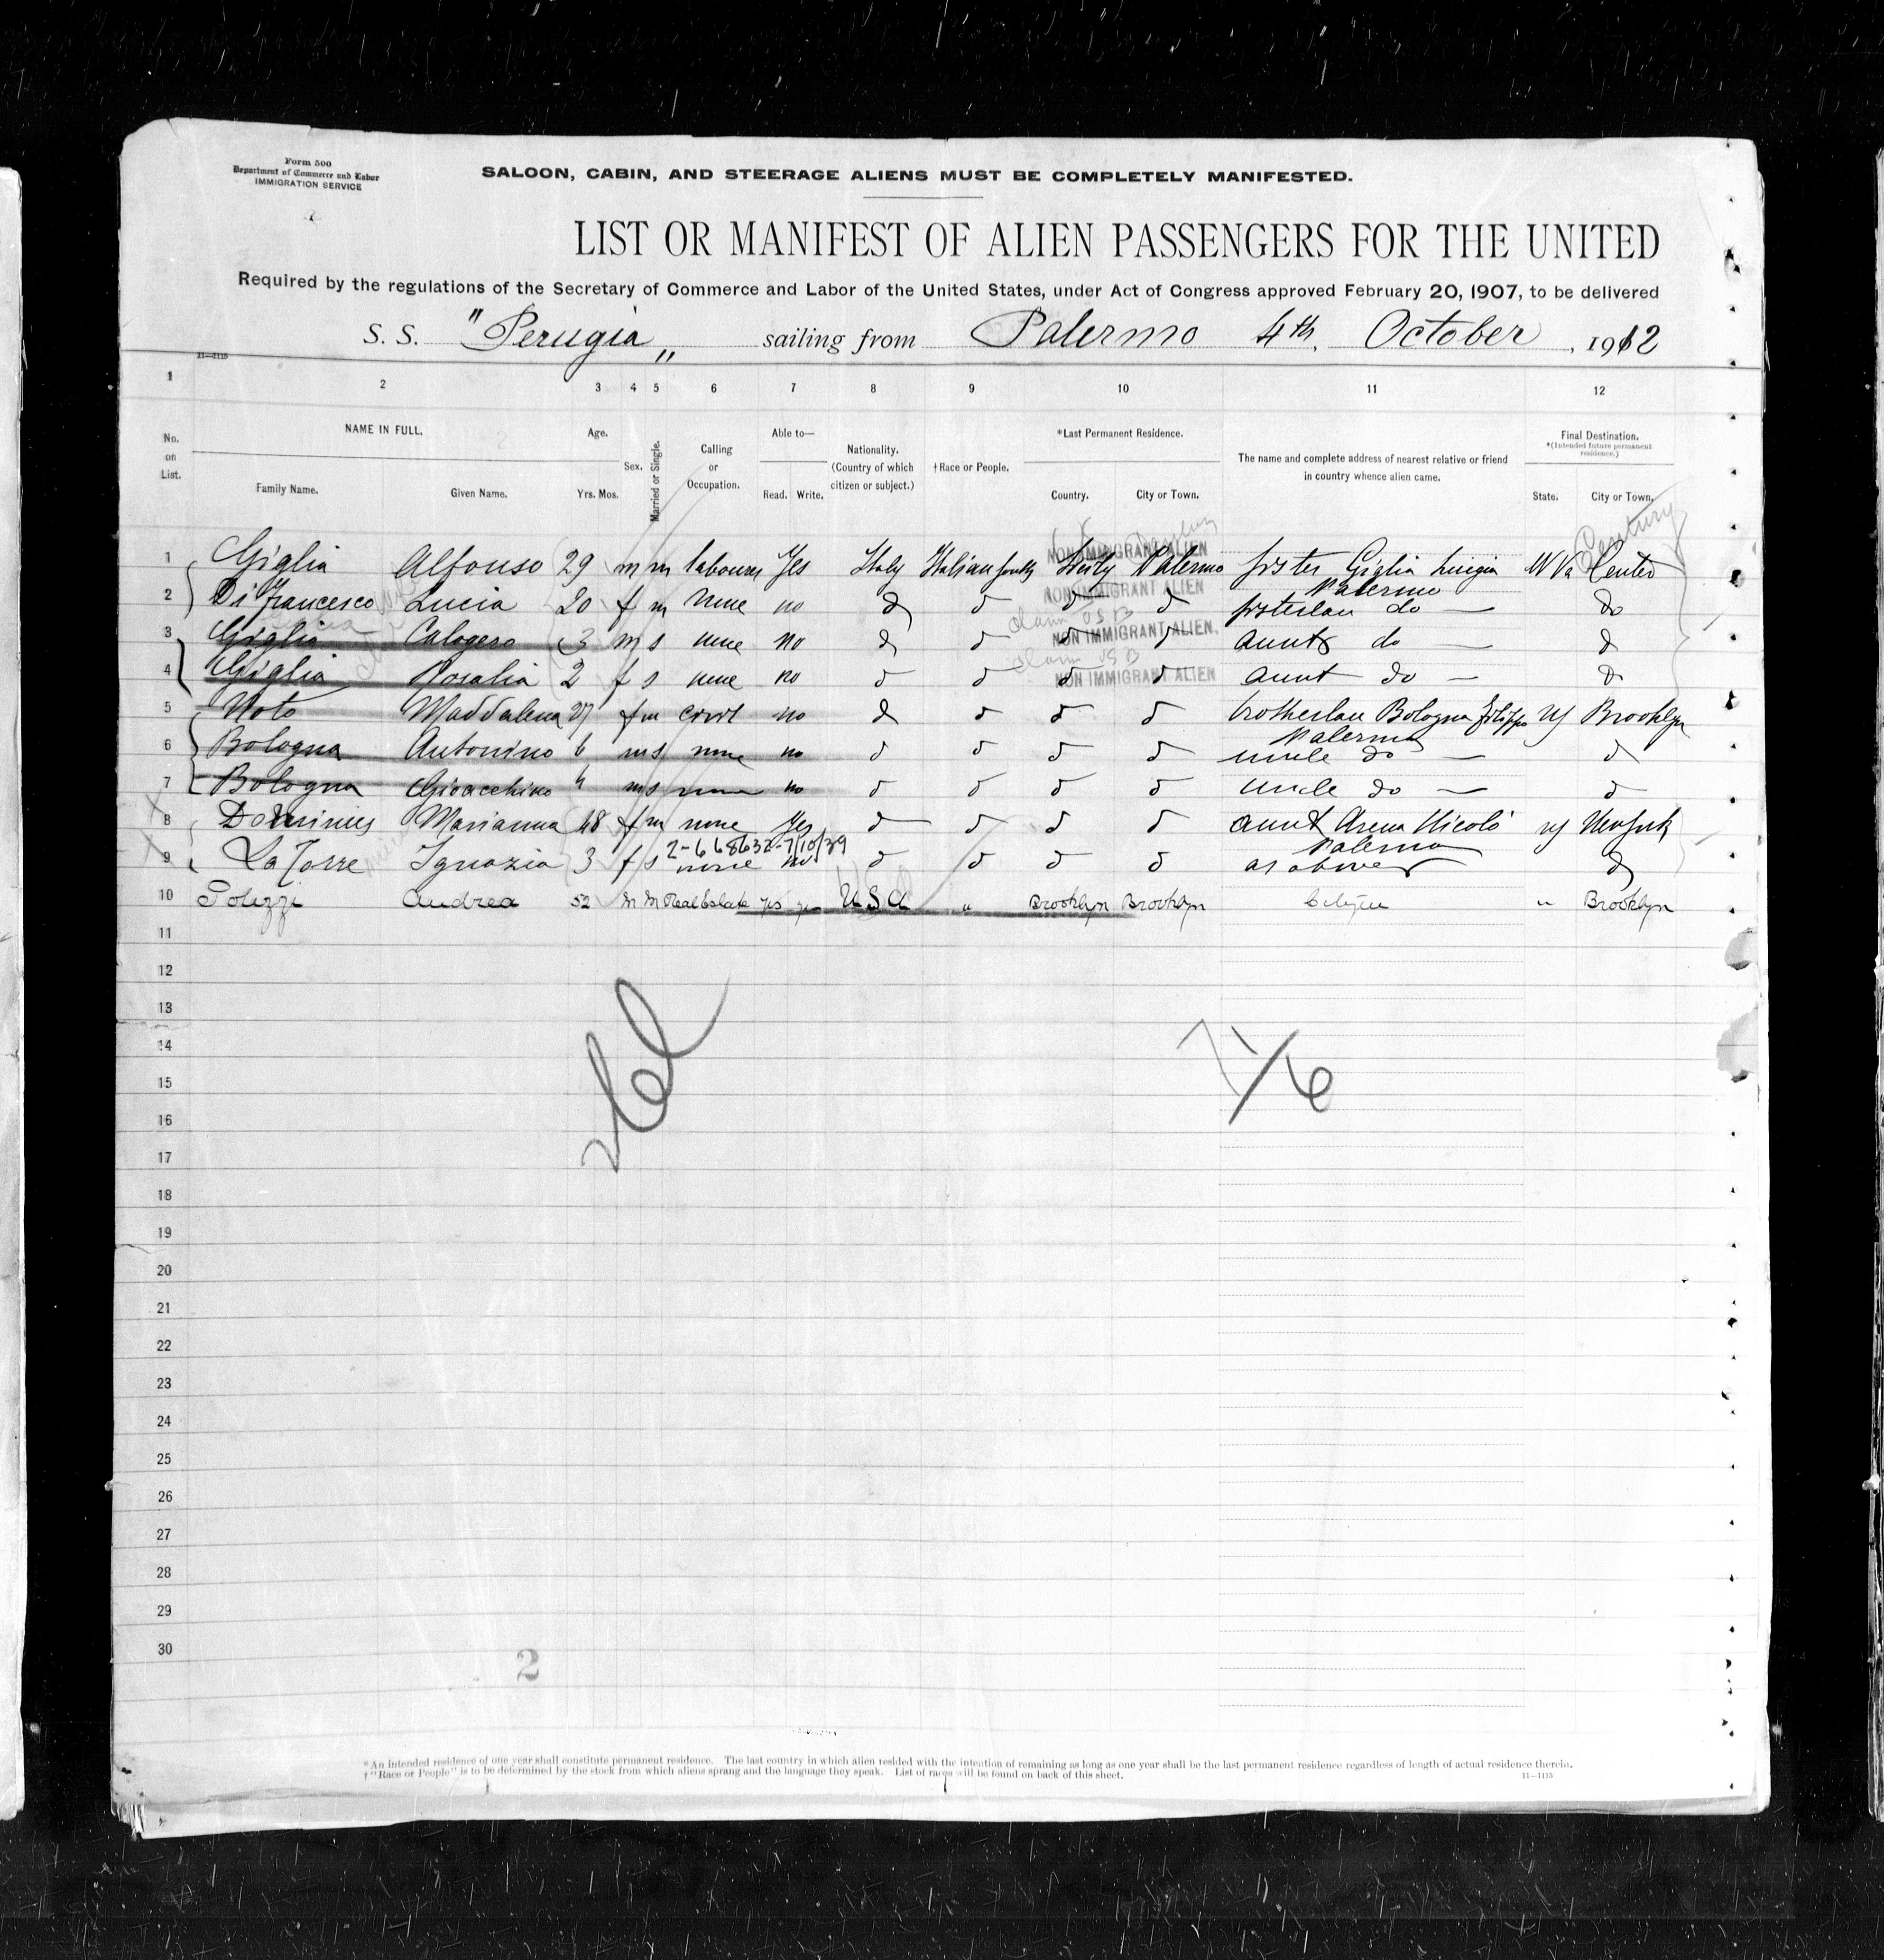 Form 500
Department of Commerce and Labor
IMMIGRATION SERVICE
SALOON, CABIN, AND STEERAGE ALIENS MUST BE COMPLETELY MANIFESTED.
LIST OR MANIFEST OF ALIEN PASSENGERS FOR THE UNITED
Required by the regulations of the Secretary of Commerce and Labor of the United States, under Act of Congress approved February 20, 1907, to be delivered
S. S. "Perugia" sailing from Palermo 4th, October, 1912
11—1115
1 2 3 4 5 6 7 8 9 10 11 12
No. on List.
NAME IN FULL.
Family Name. Given Name.
Age.
Yrs. Mos.
Sex.
Married or Single.
Calling or Occupation.
Able to—
Read. Write.
Nationality. (Country of which citizen or subject.)
†Race or People.
*Last Permanent Residence.
Country. City or Town.
The name and complete address of nearest relative or friend in country whence alien came.
Final Destination.
*(Intended future permanent residence.)
State. City or Town.
Century
NON IMMIGRANT ALIEN
1 Giglia Alfonso 29 m m labourer Yes Italy Italian south Sicily Palermo Giglia Luigia W Va Center
Palermo
NON IMMIGRANT ALIEN
2 Di Francesco Lucia 20 f m none no do Do
NON IMMIGRANT ALIEN.
3 Giglia Calogero 3 m s none no aunt do
NON IMMIGRANT ALIEN
4 Giglia Rosalia 2 f s none no aunt do
5 Noto Maddalena 27 f m no Bologna Filippo NY Brooklyn
Palermo
6 Bologna Antonino 6 m s none no uncle do
7 Bologna Gioacchino 4 m s none no uncle do
8 Marianna 48 f m none Yes aunt Arena Nicolò NY New York
2-668632-7/10/39 Palermo
9 La Torre Ignazia 3 f s none no as above
10 Polizzi Andrea 52 M M Real Estate yes yes USA " Brooklyn Brooklyn Citizen " Brooklyn
11
12
13
14
15
16
17
18
19
20
21
22
23
24
25
26
27
28
29
30
2
*An intended residence of one year shall constitute permanent residence. The last country in which alien resided with the intention of remaining as long as one year shall be the last permanent residence regardless of length of actual residence therein.
†"Race or People" is to be determined by the stock from which aliens sprang and the language they speak. List of races will be found on back of this sheet.
11—1115